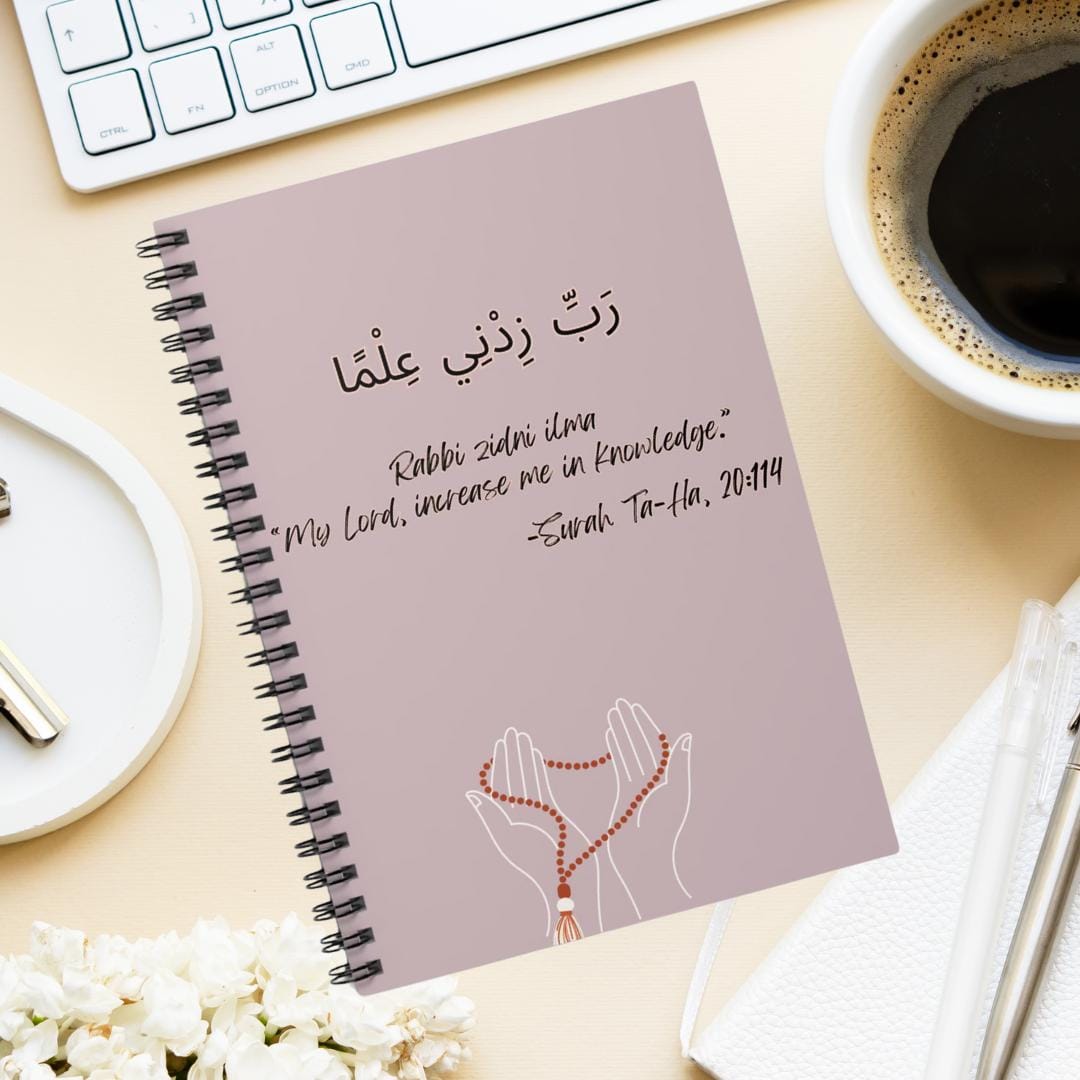 ALT
CTRL
FN
OPTION
CMD
رَبِّ زِدْنِي عِلْمًا
Rabbi zidni ilma
“My Lord, increase me in knowledge.”
-Surah Ta-Ha, 20:114